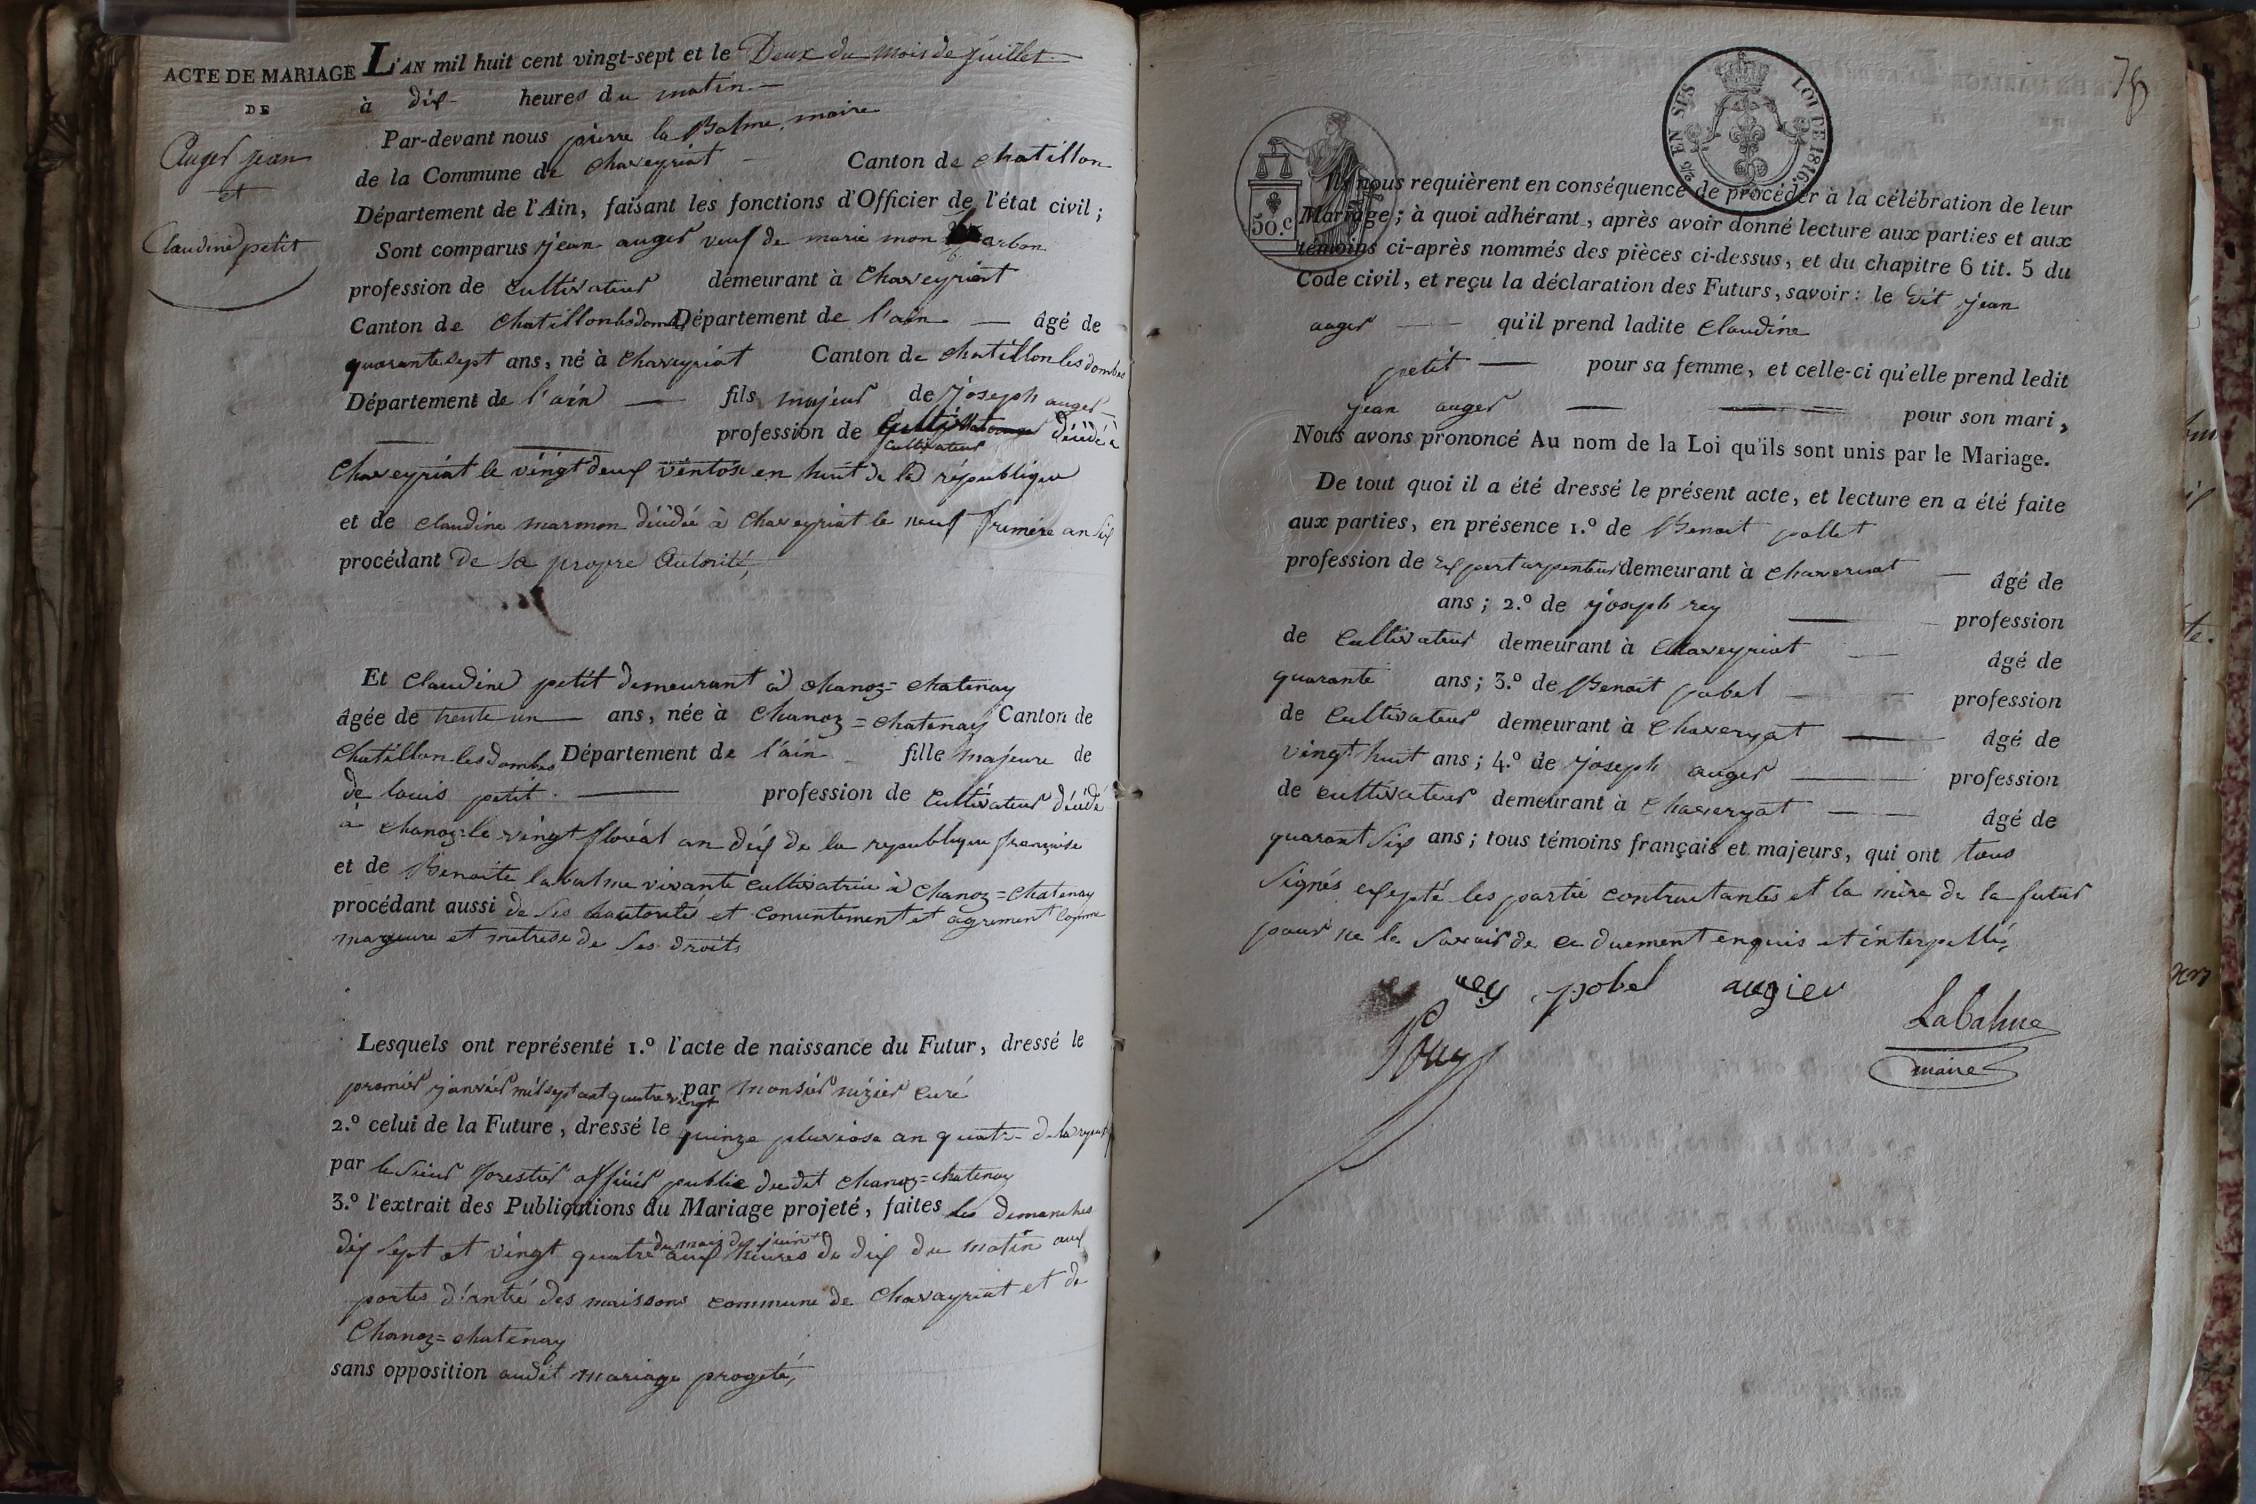 ACTE DE MARIAGE
DE
Auger jean
et
Claudine petit
L'AN mil huit cent vingt-sept et le Deux du mois de juillet
à dix heures du matin
Par-devant nous pierre la Balme, maire
de la Commune de chaveyriat Canton de chatillon
Département de l'Ain, faisant les fonctions d'Officier de l'état civil ;
Sont comparus jean auger veuf de marie mon arbon
profession de cultivateur demeurant à chaveyriat
Canton de chatillonlesdombes Département de l'ain âgé de
quarante sept ans, né à chaveyriat Canton de chatillon les dombes
Département de l'ain fils majeur de joseph auger
profession de cultivateur décédé à
cultivateur
chaveyriat le vingt deux ventose en huit de la république
et de claudine marmon décédée à chaveyriat le neuf frimere an six
procédant de sa propre autorité,
Et claudine petit demeurant à chanoz=chatenay
âgée de trente un ans, née à chanoz=chatenay Canton de
chatillon les dombes Département de l'ain fille majeure de
de louis petit profession de cultivateur décédé
a chanoz le vingt floréal an dix de la republique françoise
et de Benoite labalme vivante cultivatrice à chanoz=chatenay
procédant aussi de ses hautorité et conuntement et agrement comme
mageure et metrese de ses droits
Lesquels ont représenté 1.º l'acte de naissance du Futur, dressé le
premier janvier mil sept cent quatre vingt par monsier nizier curé
2.º celui de la Future, dressé le quinze pluviose an quatre de la
par le sieur forestier officier public du dit chanoz=chatenay
3.º l'extrait des Publications du Mariage projeté, faites les dimanches
du mois de juin
dix sept et vingt quatre aux heures de dix du matin aux
portes d'antré des maissons commune de chavayriat et de
chanoz=chatenay
sans opposition audit mariage progeté,
78
EN SUS
LOI DE 1816.
50.c
Ils nous requièrent en conséquence de procéder à la célébration de leur
Mariage ; à quoi adhérant, après avoir donné lecture aux parties et aux
témoins ci-après nommés des pièces ci-dessus, et du chapitre 6 tit. 5 du
Code civil, et reçu la déclaration des Futurs, savoir : le dit jean
auger qu'il prend ladite claudine
petit pour sa femme, et celle-ci qu'elle prend ledit
jean auger pour son mari,
Nous avons prononcé Au nom de la Loi qu'ils sont unis par le Mariage.
De tout quoi il a été dressé le présent acte, et lecture en a été faite
aux parties, en présence 1.º de Benoit pollet
profession de expert arpenteur demeurant à chaveriat âgé de
ans ; 2.º de joseph rey profession
de cultivateur demeurant à chaveyriat âgé de
quarante ans ; 3.º de Benoit pobel profession
de cultivateur demeurant à chaveryat âgé de
vingt huit ans ; 4.º de joseph auger profession
de cultivateur demeurant à chaveryat âgé de
quarant six ans ; tous témoins français et majeurs, qui ont tous
signés exepté les partie contractantes et la mère de la futur
pour ne le savoir de ce duement enquis et interpellé,
rey pobel augier
LaBalme
maire